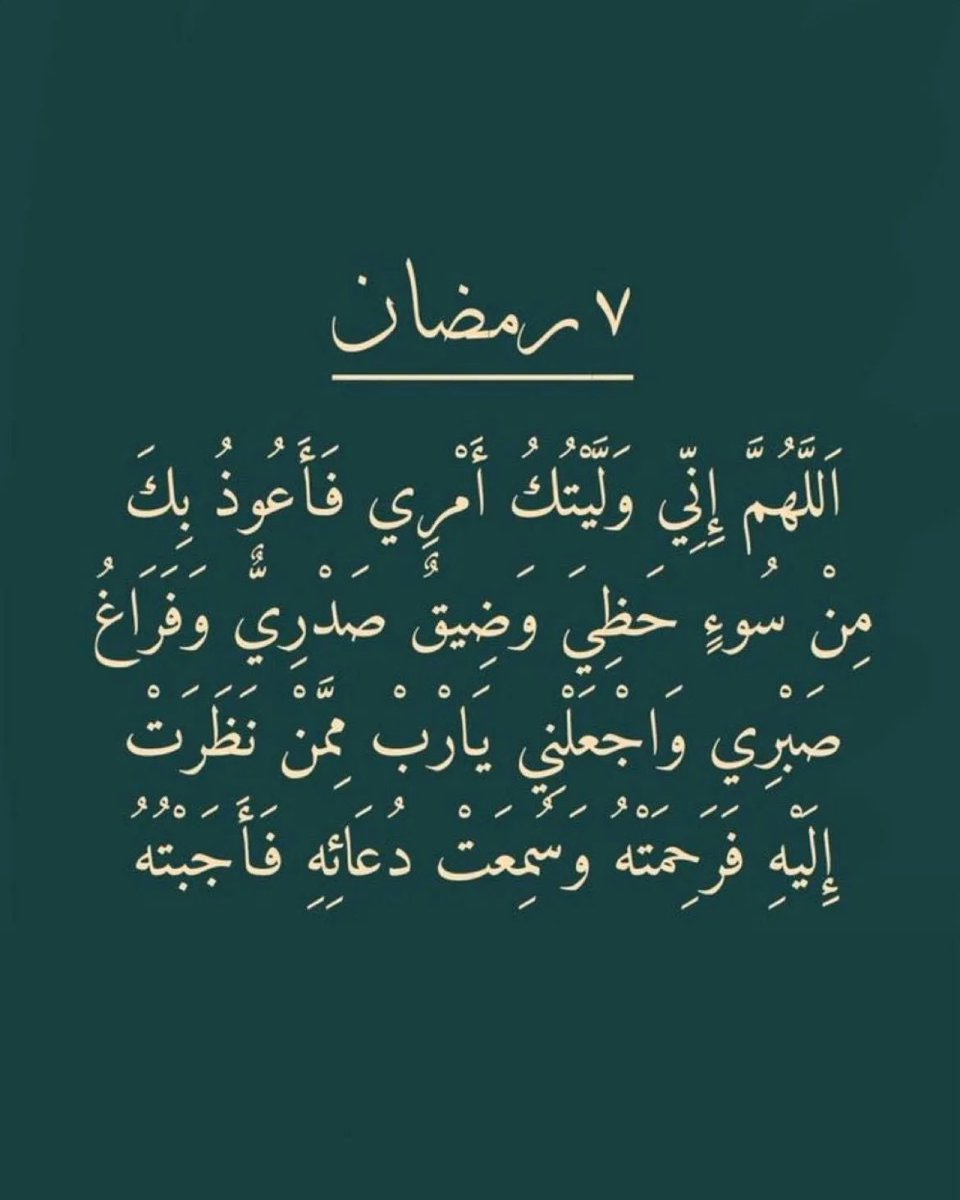 ٧ رمضان
اَللَّهُمَّ إِنِّي وَلَّيْتُكُ أَمْرِي فَأَعُوذُ بِكَ
مِنْ سُوءٍ حَظِيَ وَضِيَقٌ صَدْرِيٌّ وَفَرَاغُ
صَبْرِي وَاجْعَلْنِي يَارْبْ مِمَّنْ نَظَرَتْ
إِلَيْهِ فَرَحِمَتْهُ وَسُمِعَتْ دُعَائِهِ فَأَجَبْتُهُ